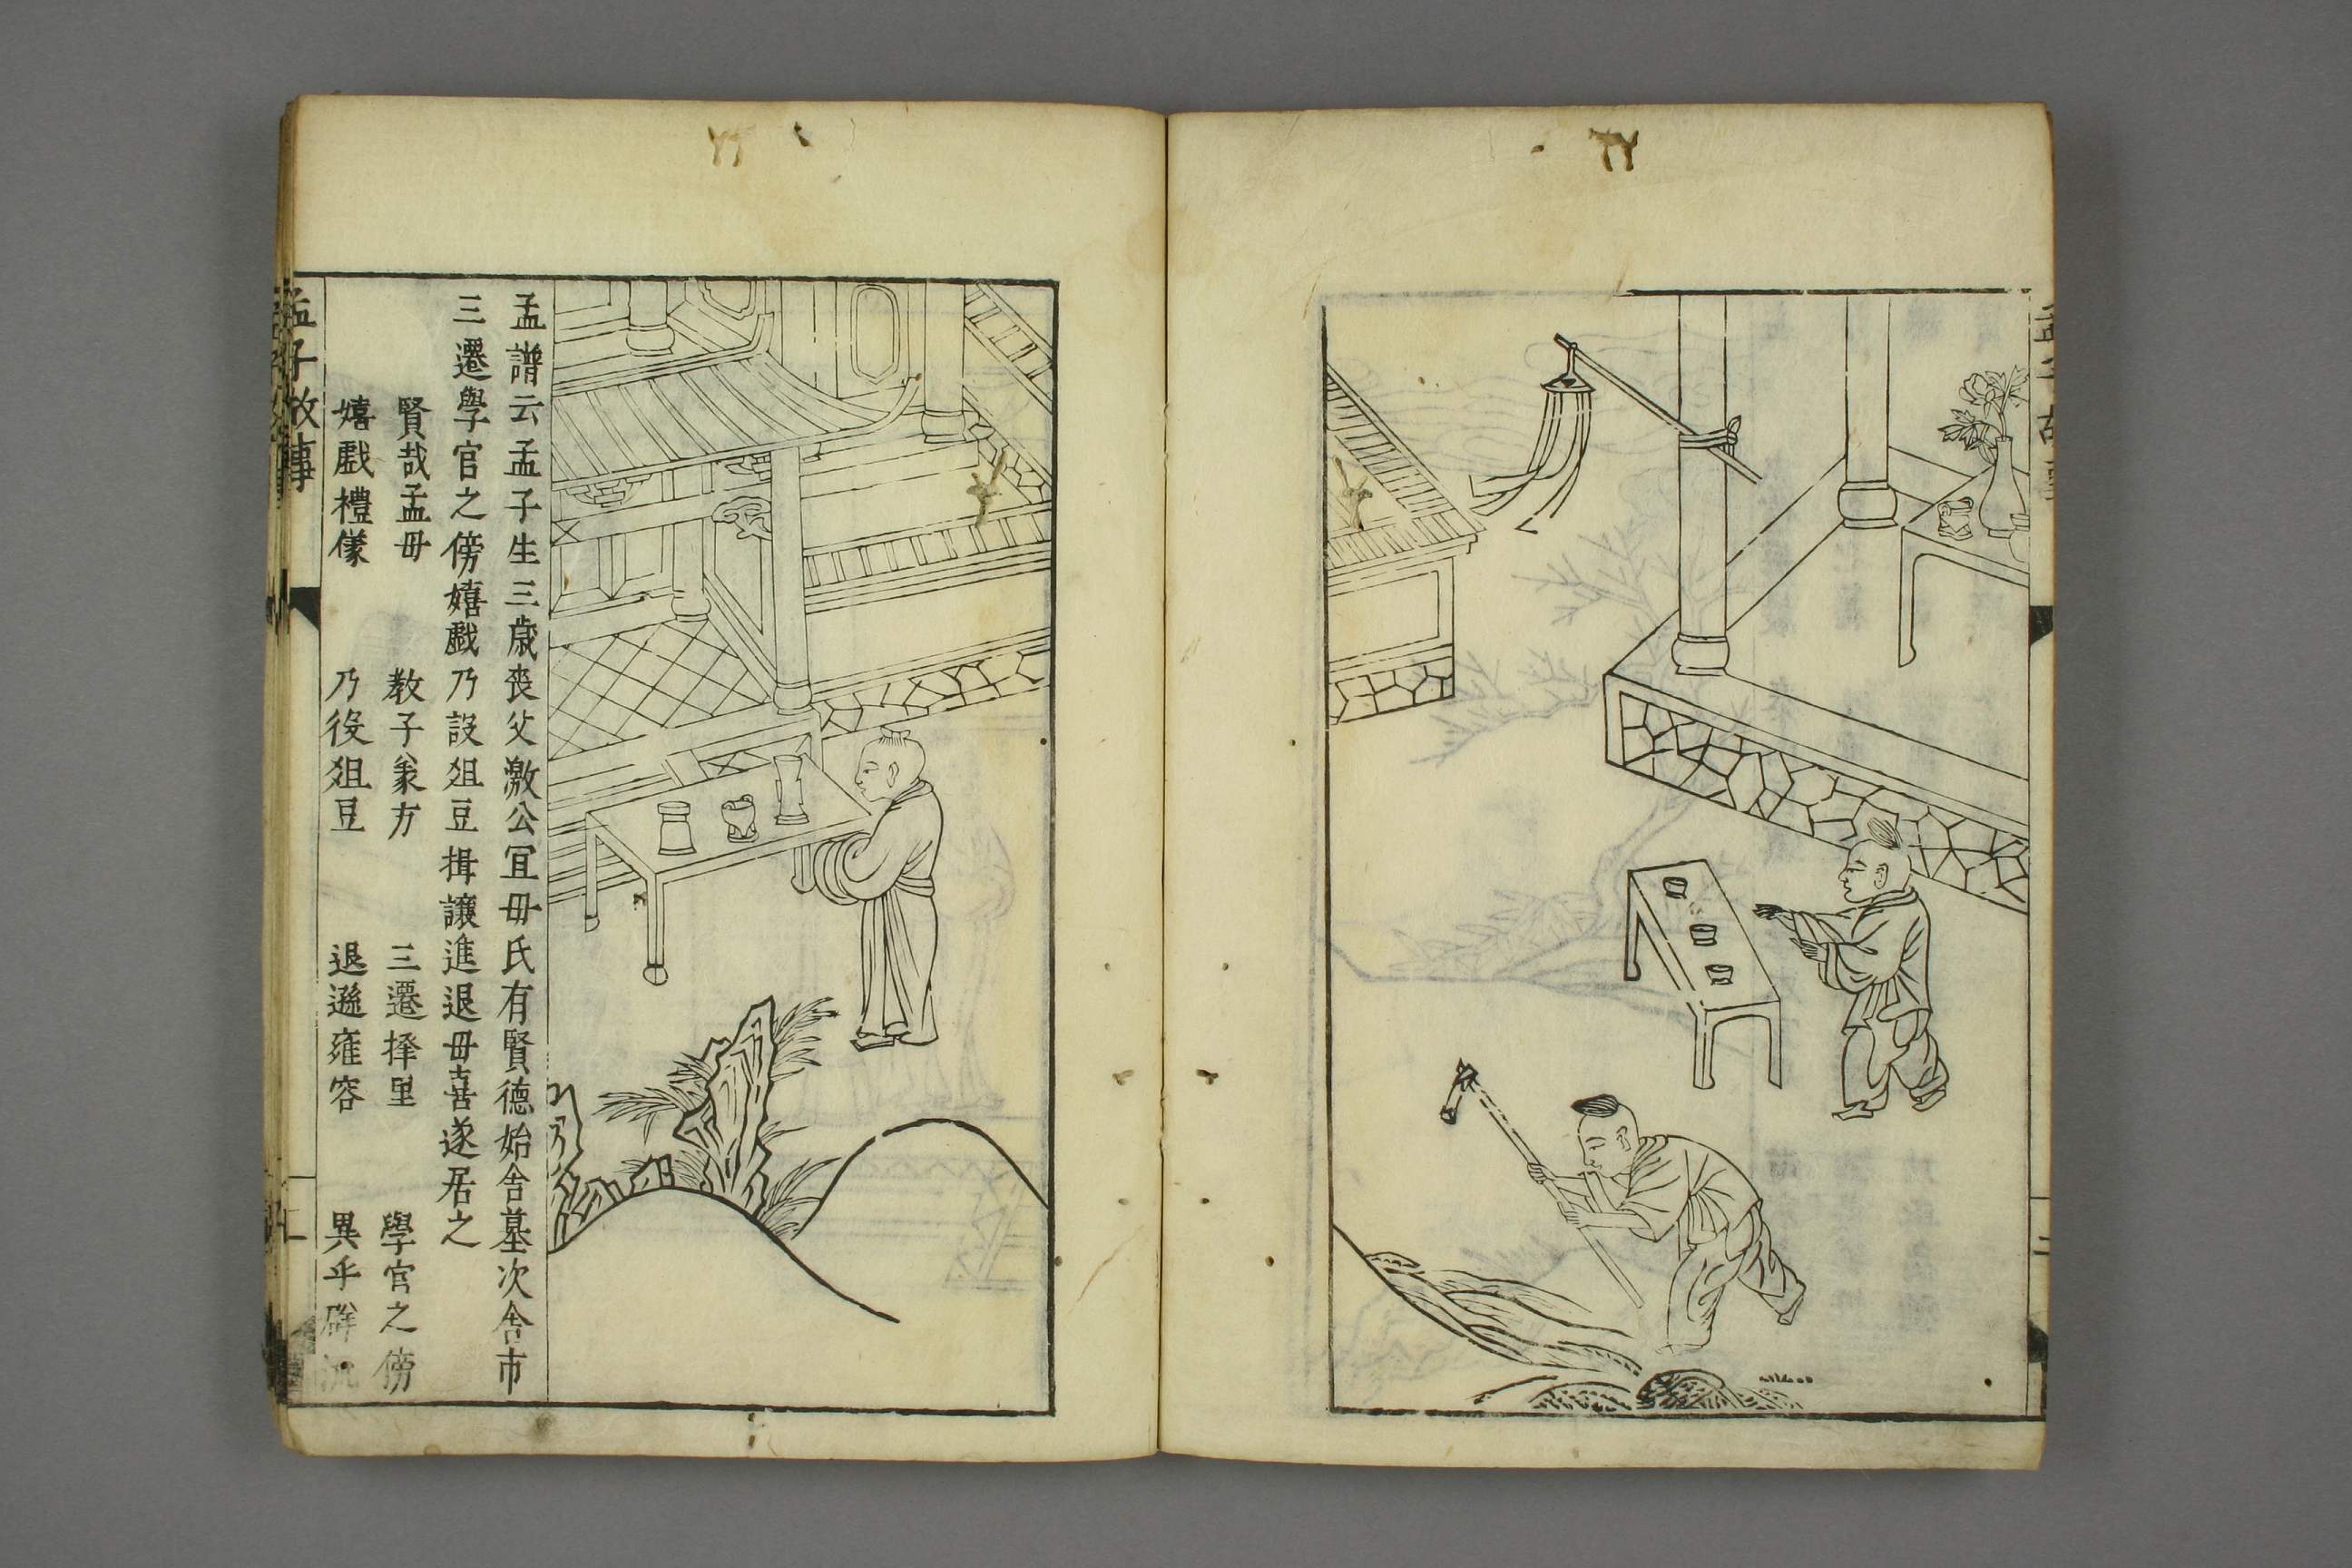 孟譜云孟子生三歳喪父激公冝毋氏有賢德始舎墓次舎市
三遷學官之傍嬉戲乃設俎豆揖讓進退毋喜遂居之
賢哉孟毋　教子㒸方　三遷擇里　學官之傍
嬉戲禮儀　乃役俎豆　退遜雍容　異乎
孟子故事
二